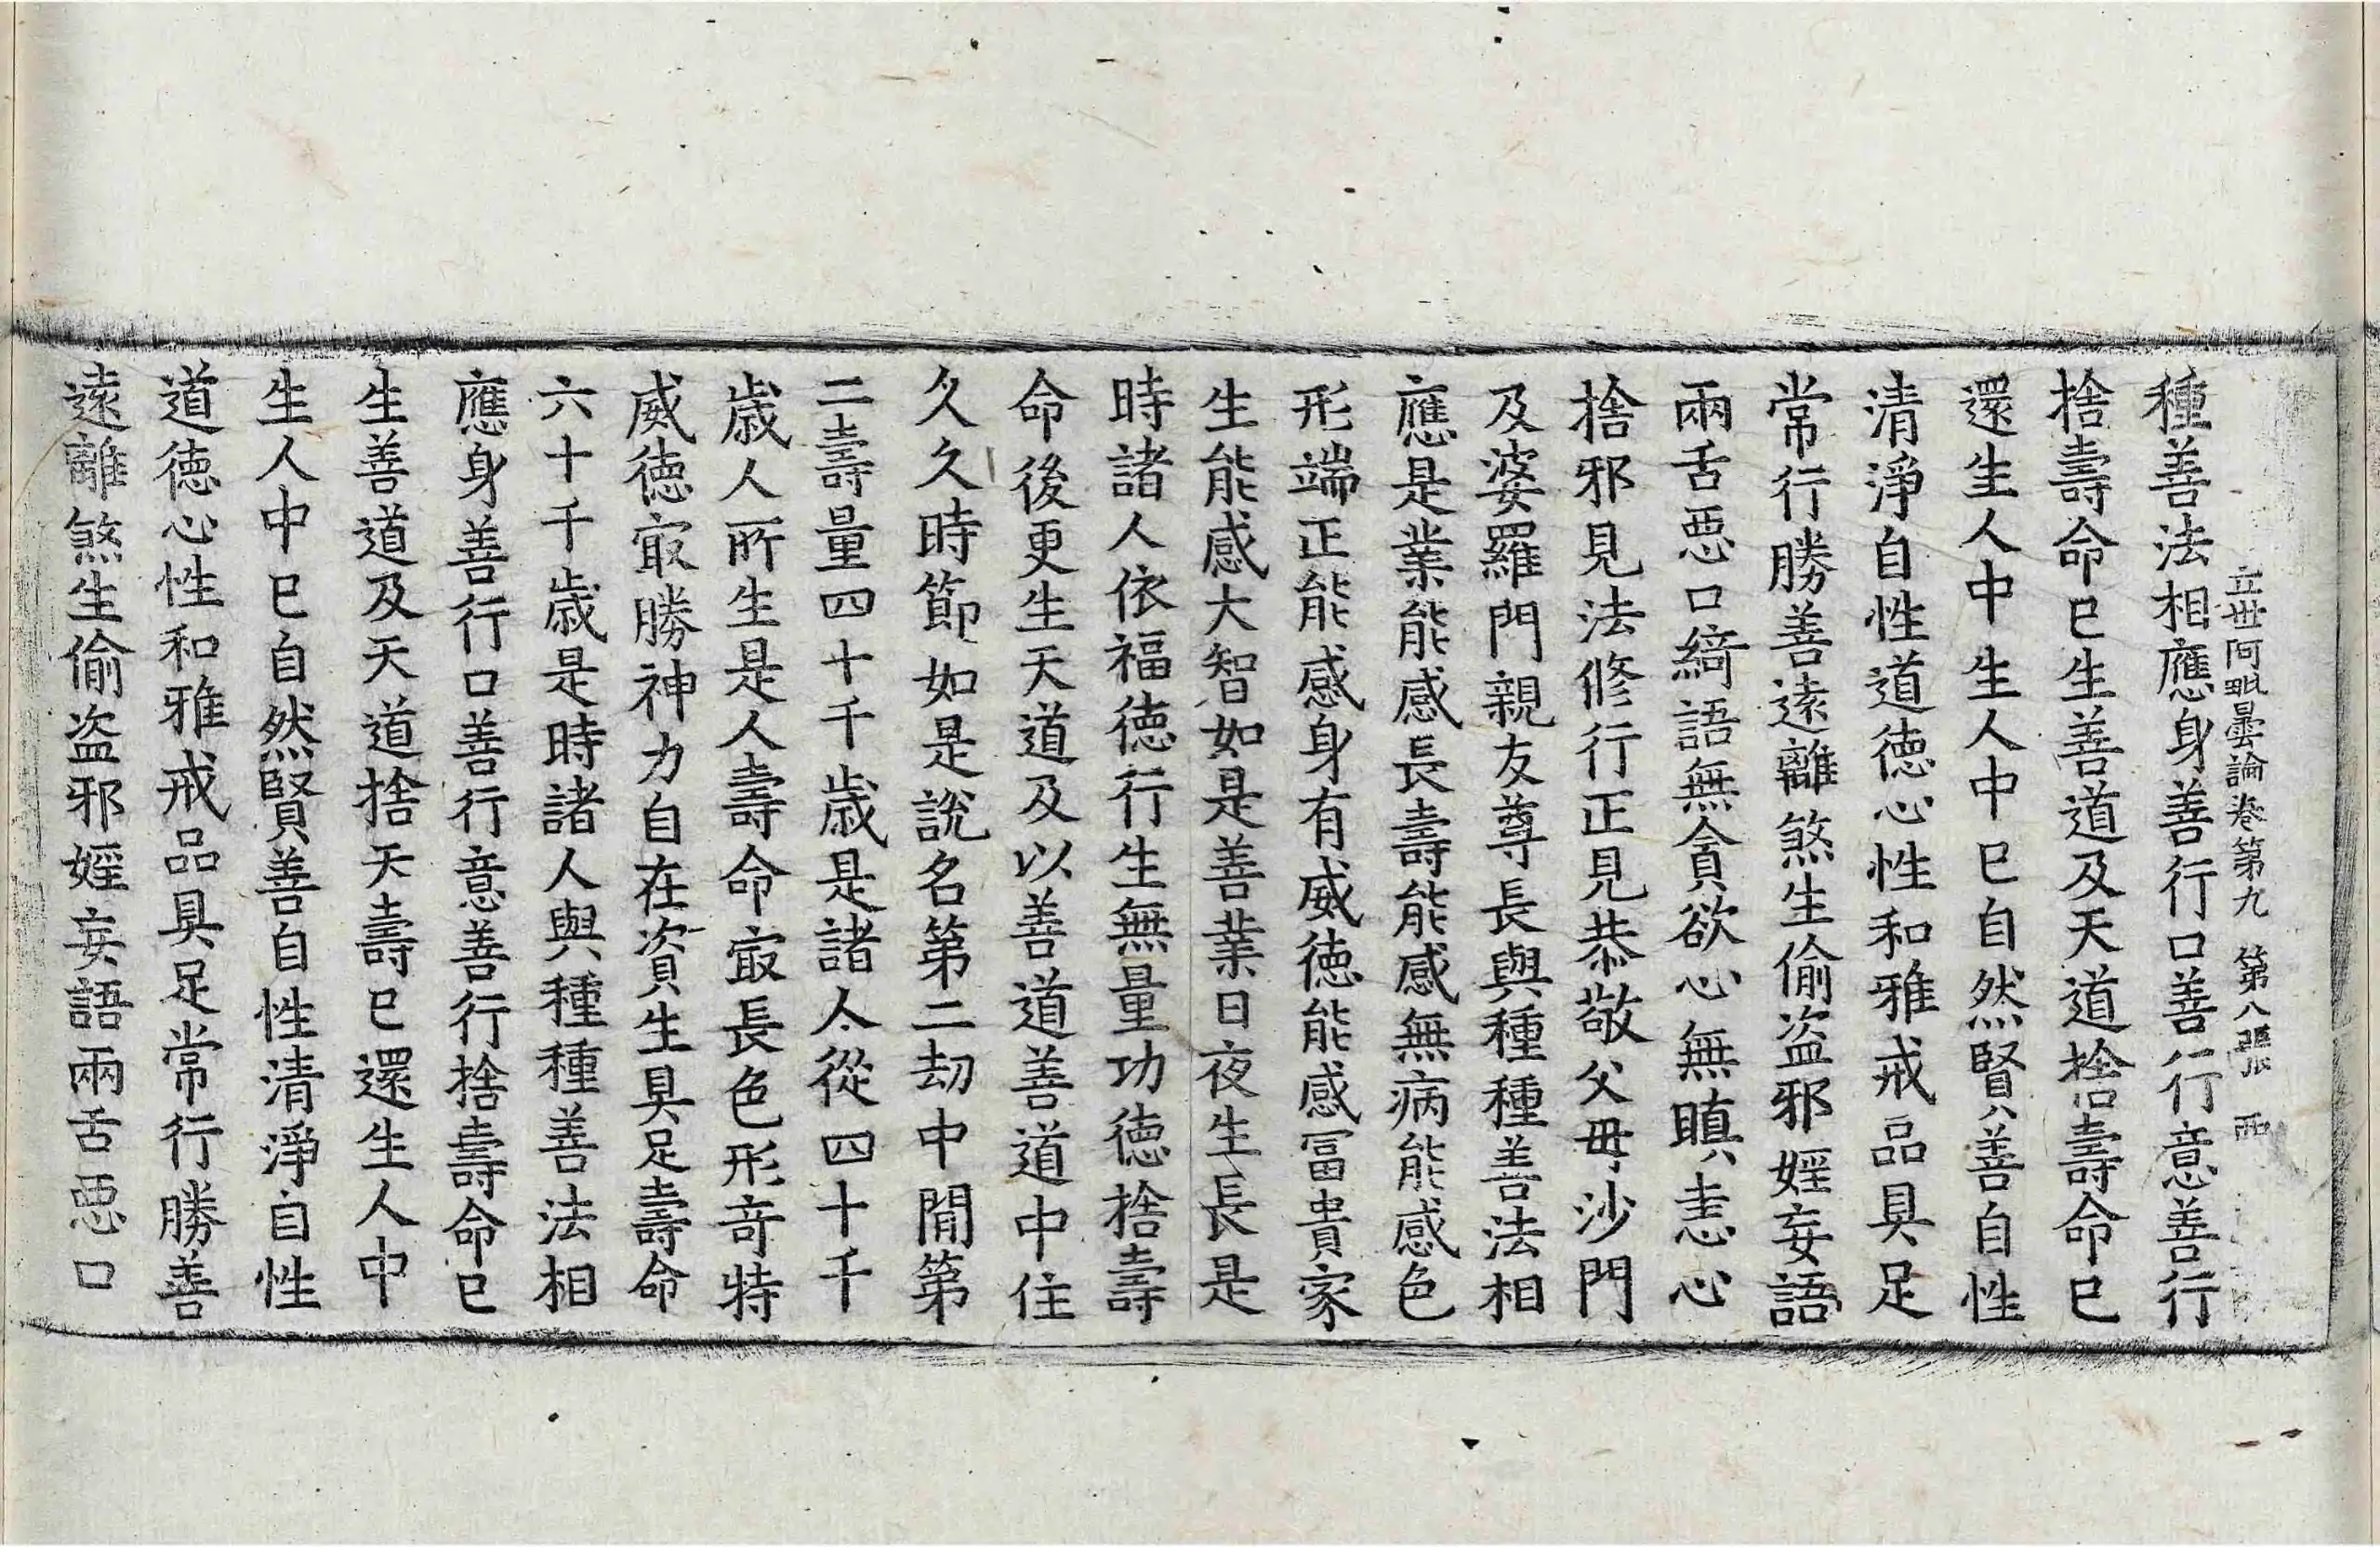 立世阿毗曇論卷第九 第八張 西
種善法相應身善行口善行意善行
捨壽命已生善道及天道捨壽命已
還生人中生人中已自然賢善自性
清淨自性道德心性和雅戒品具足
常行勝善遠離煞生偷盗邪婬妄語
兩舌惡口綺語無貪欲心無瞋恚心
捨邪見法修行正見恭敬父毋沙門
及婆羅門親友尊長與種種善法相
應是業能感長壽能感無病能感色
形端正能感身有威德能感冨貴家
生能感大智如是善業日夜生長是
時諸人依福德行生無量功德捨壽
命後更生天道及以善道善道中住
久久時節如是說名第二劫中間第
二壽量四十千歲是諸人從四十千
歲人所生是人壽命㝡長色形奇特
威德㝡勝神力自在資生具足壽命
六十千歲是時諸人與種種善法相
應身善行口善行意善行捨壽命已
生善道及天道捨天壽已還生人中
生人中已自然賢善自性清淨自性
道德心性和雅戒品具足常行勝善
遠離煞生偷盗邪婬妄語兩舌惡口